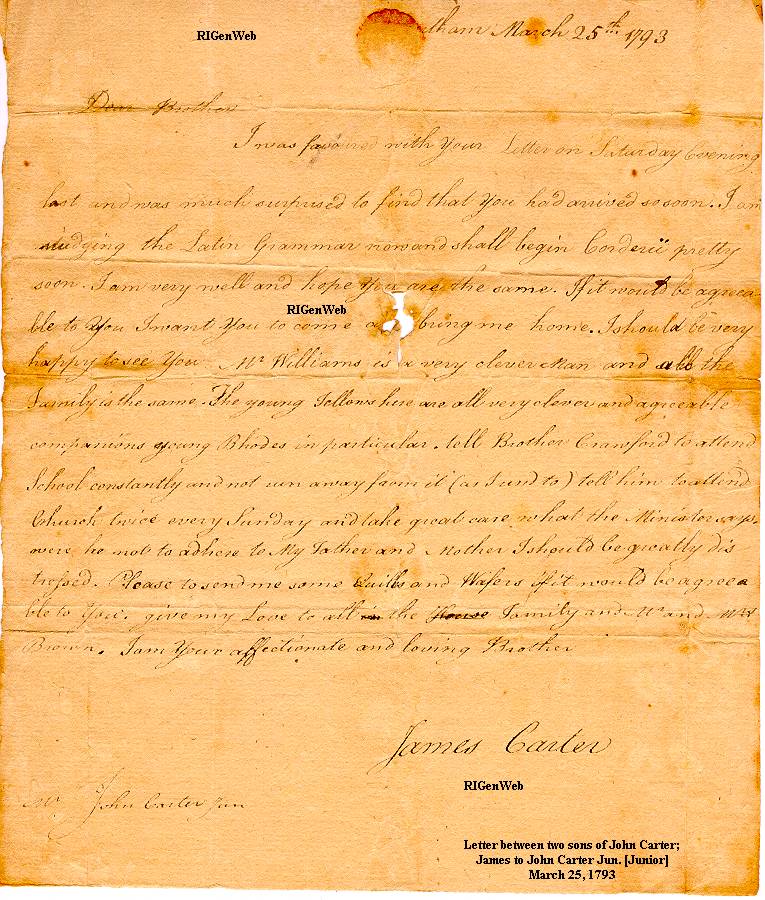 RIGenWeb
ltham March 25th 1793
Dear Brother
I was favoured with Your Letter on Saturday Evening
last and was much surprised to find that You had arrived so soon. I am
studying the Latin Grammar now and shall begin Corderii pretty
soon. I am very well and hope You are the same. If it would be agreea
RIGenWeb
ble to You I want You to come a bring me home. I should be very
happy to see You Mr Williams is a very clever Man and all the
Family is the same. The young Fellows here are all very clever and agreeable
companions young Rhodes in particular. tell Brother Crawford to attend
School constantly and not run away from it (as I und to) tell him to attend
Church twice every Sunday and take great care what the Minister says.
were he not to adhere to My Father and Mother I should be greatly dis
tressed. Please to send me some Quills and Wafers if it would be agreea
ble to You. give my Love to all in the House Family and Mr and Mrs
Brown. I am Your affectionate and loving Brother
James Carter
RIGenWeb
Mr John Carter Jun
Letter between two sons of John Carter;
James to John Carter Jun. [Junior]
March 25, 1793